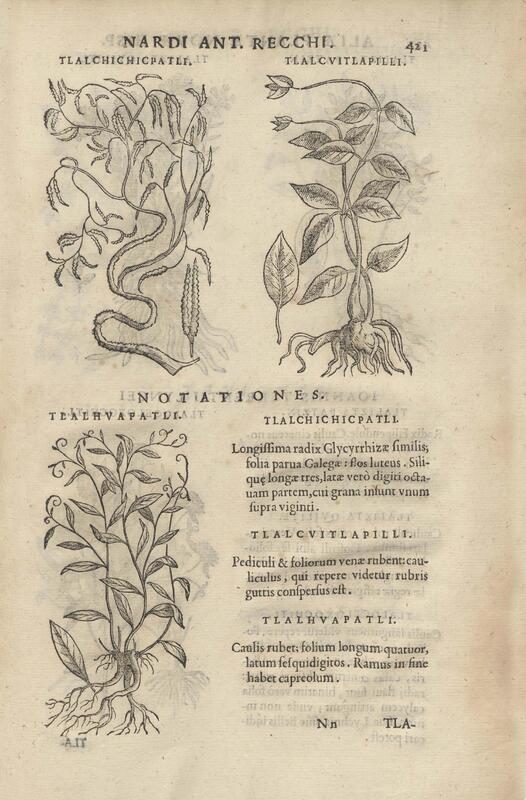 NARDI ANT. RECCHI. 421
TLALCHICHICPATLI.
TLALCVITLAPILLI.
NOTATIONES.
TLALHVAPATLI.
TLALCHICHICPATLI.
Longiſſima radix Glycyrrhizæ ſimilis;
folia parua Galegæ: flos luteus. Sili-
quę longæ tres, latæ verò digiti octa-
uam partem, cui grana inſunt vnum
ſupra viginti.
TLALCVITLAPILLI.
Pediculi & foliorum venæ rubent: cau-
liculus, qui repere videtur rubris
guttis conſperſus eſt.
TLALHVAPATLI.
Caulis rubet: folium longum quatuor,
latum ſeſquidigitos. Ramus in fine
habet capreolum.
Nn TLA-